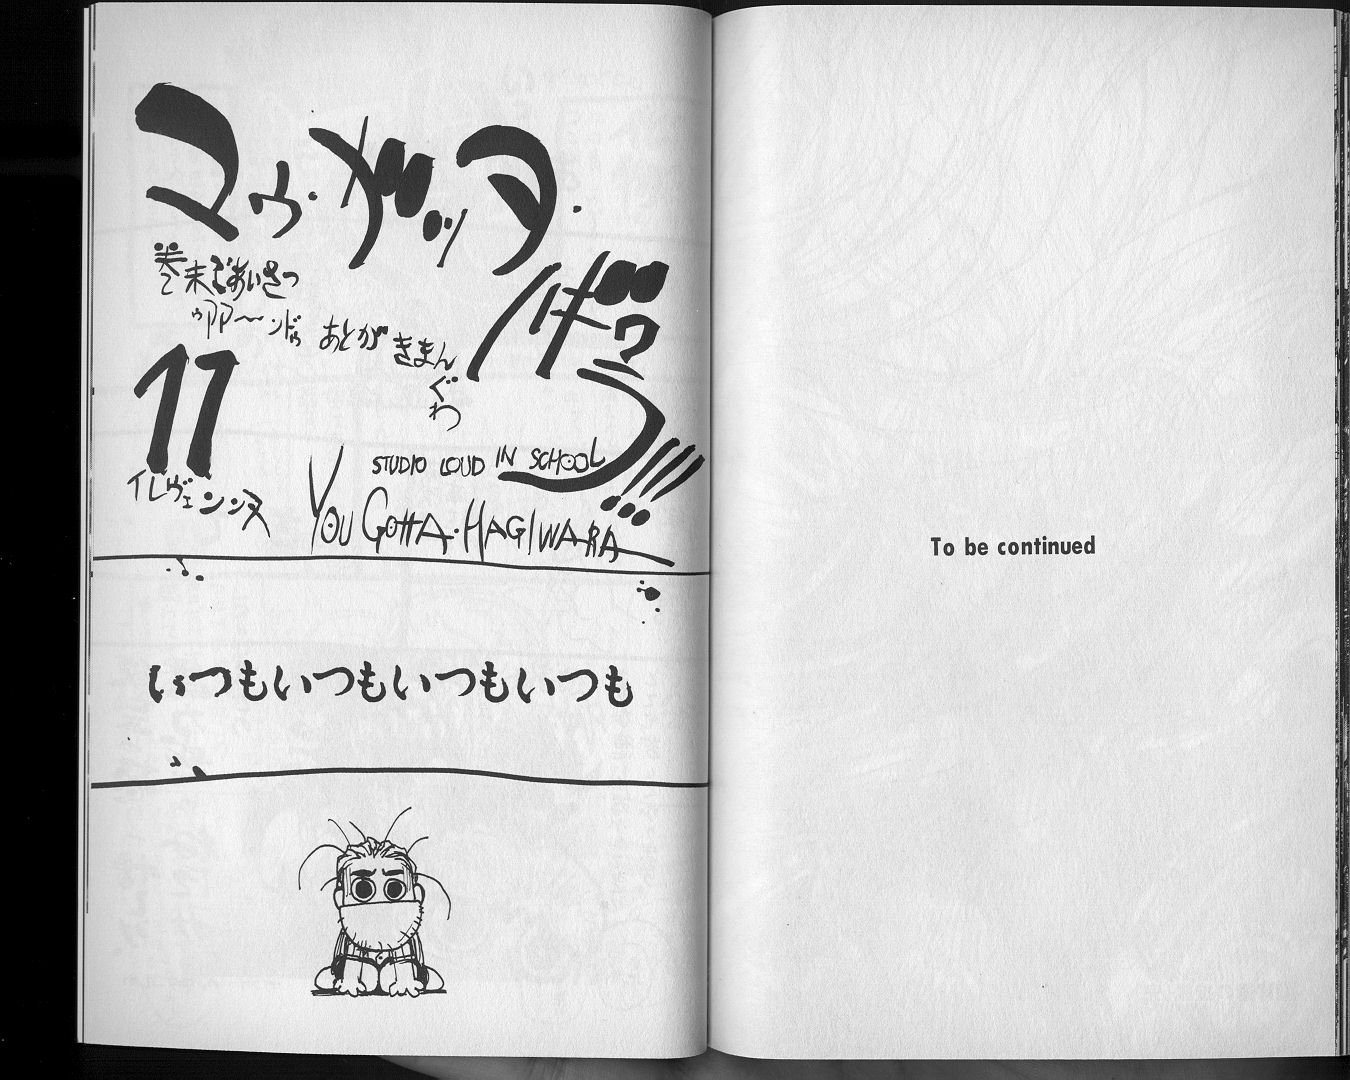 マゥ・ガッデ・
げっつ!!!
巻末ごあいさつ
ゥアア〜ンドゥ あとがきまんぐわ
11
イレヴェンンヌ
STUDIO LOUD IN SCHOOL
YOU GOTTA・HAGIWARA
いつもいつもいつもいつも
To be continued